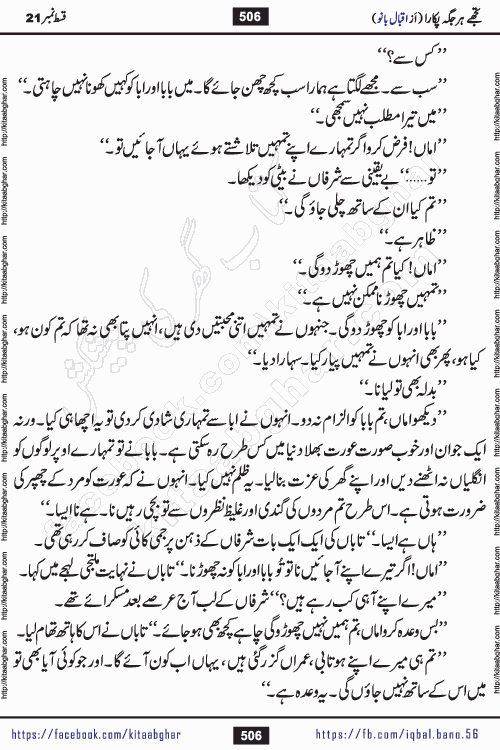 تجھے ہر جگہ پکارا (از اقبال بانو) 506 قسط نمبر 21
’’کس سے؟‘‘
’’سب سے۔ مجھے لگتا ہے ہمارا سب کچھ چھن جائے گا۔ میں بابا اور ابا کو کہیں کھونا نہیں چاہتی۔‘‘
’’میں تیرا مطلب نہیں سمجھی۔‘‘
’’اماں! فرض کرو اگر تمہارے اپنے تمہیں تلاشتے ہوئے یہاں آجائیں تو۔‘‘
’’تو......‘‘ بے یقینی سے شرفاں نے بیٹی کو دیکھا۔
’’تم کیا ان کے ساتھ چلی جاؤ گی۔‘‘
’’ظاہر ہے۔‘‘
’’اماں! کیا تم ہمیں چھوڑ دو گی۔‘‘
’’تمہیں چھوڑنا ممکن نہیں ہے۔‘‘
’’بابا اور ابا کو چھوڑ دو گی۔ جنہوں نے تمہیں اتنی محبتیں دی ہیں، انہیں پتا بھی نہ تھا کہ تم کون ہو،
کیا ہو، پھر بھی انہوں نے تمہیں پیار کیا۔ سہارا دیا۔‘‘
’’بدلہ بھی تو لیا نا۔‘‘
’’دیکھو اماں، تم بابا کو الزام نہ دو۔ انہوں نے ابا سے تمہاری شادی کر دی تو یہ اچھا ہی کیا۔ ورنہ
ایک جوان اور خوب صورت عورت بھلا دنیا میں کس طرح رہ سکتی ہے۔ بابا نے تو تمہارے اوپر لوگوں کو
انگلیاں نہ اٹھنے دیں اور اپنے گھر کی عزت بنا لیا۔ یہ ظلم نہیں کیا۔ انہوں نے کہ عورت کو مرد کے چھپر کی
ضرورت ہوتی ہے۔ اس طرح تم مردوں کی گندی اور غلیظ نظروں سے تو بچی رہیں نا۔ ہے نا ایسا۔‘‘
’’ہاں ہے ایسا۔‘‘ تاباں کی ایک ایک بات شرفاں کے ذہن پر جمی کائی کو صاف کر رہی تھی۔
’’اماں! اگر تیرے اپنے آجائیں نا تو تُو بابا اور ابا کو نہ چھوڑنا۔‘‘ تاباں نے نہایت ملتجی لہجے میں کہا۔
’’میرے اپنے آہی کب رہے ہیں؟‘‘ شرفاں کے لب آج عرصے بعد مسکرائے تھے۔
’’بس وعدہ کرو اماں، تم ہمیں نہیں چھوڑو گی چاہے کچھ بھی ہو جائے۔‘‘ تاباں نے اس کا ہاتھ تھام لیا۔
’’تم ہی میرے اپنے ہو تابی، عمراں گزر گئی ہیں، یہاں اب کون آئے گا۔ اور جو کوئی آیا بھی تو
میں اس کے ساتھ نہیں جاؤں گی۔ یہ وعدہ ہے۔‘‘
https://facebook.com/kitaabghar 506 https://fb.com/iqbal.bano.56
http://kitaabghar.com http://kitaabghar.com http://kitaabghar.com http://kitaabghar.com